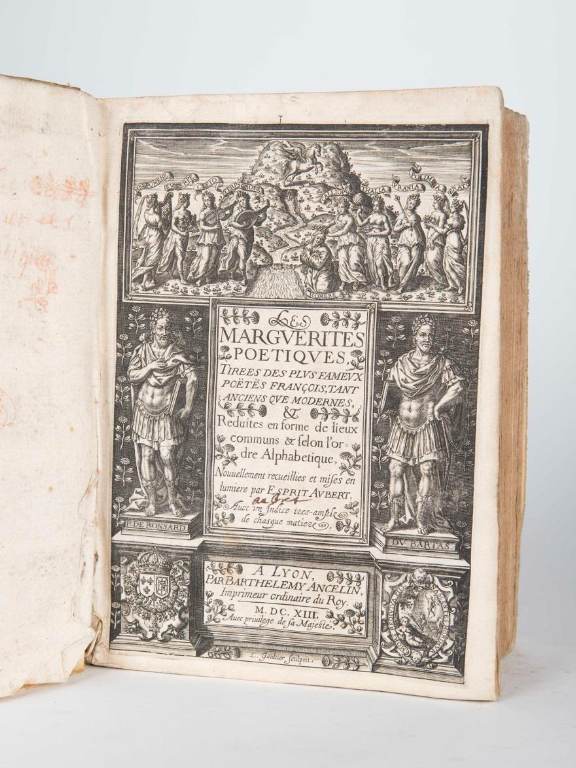 VRANIA
LES
MARGVERITES
POETIQVES,
TIREES DES PLVS FAMEVX
POËTËS FRANÇOIS, TANT
ANCIENS QVE MODERNES,
&
Reduites en forme de lieux
communs & selon l'or
dre Alphabetique,
Nouuellement recueillies et mises en
lumiere par ESPRIT AVBERT.
Auec vn Indice tres-ample
de chasque matiere
P. DE RONSARD
DV BARTAS
A LYON,
PAR BARTHELEMY ANCELIN,
Imprimeur ordinaire du Roy.
M. DC. XIII.
Auec priuilege de sa Majesté.
sculpsit